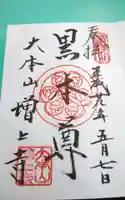 奉拝 平成廿九年五月七日
黒本尊
大本山増上寺